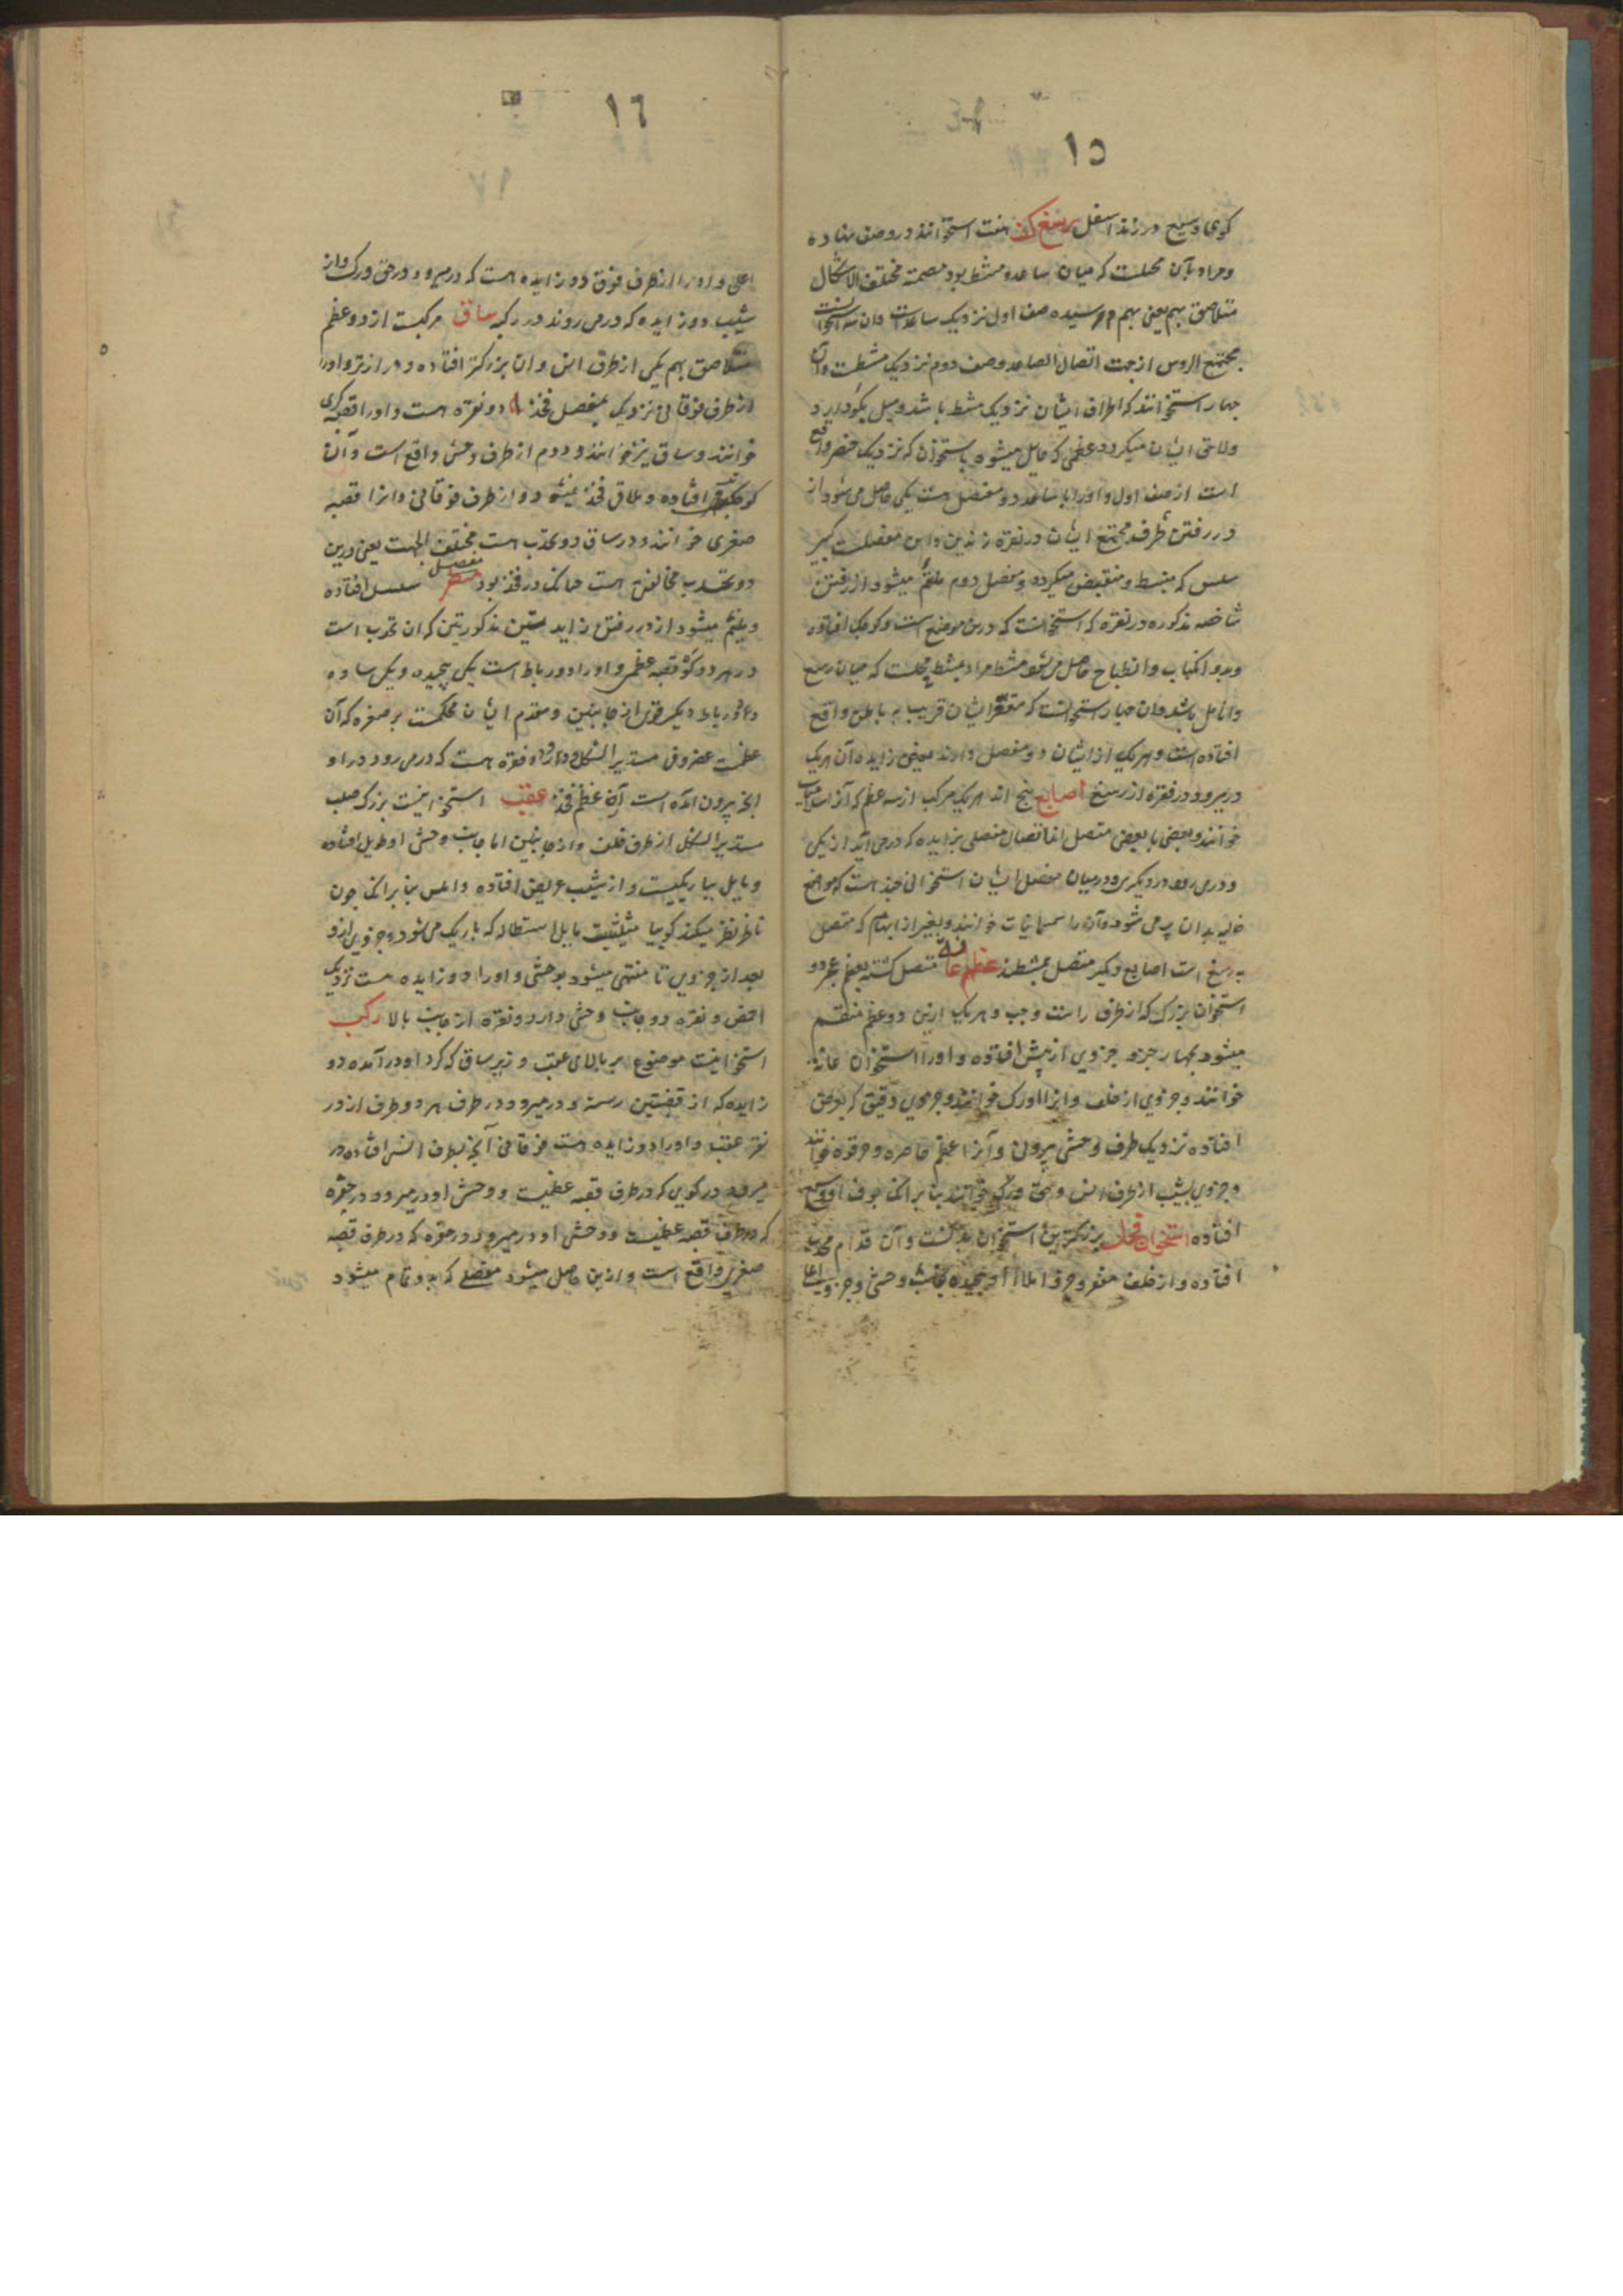 ١٥
کوی وسیع در زند اسفل رسغ کف هفت استخوانند در دو صف نهاده
ومراد بآن محلیست که میان ساعد و مشط بود مصمته مختلف الاشکال
متلاصق بهم یعنی بهم رسیده صف اول نزدیک ساعدست وان سه استخوانست
مجتمع الروس از جهت اتصال الصاعد وصف دوم نزدیک مشطست وآن
چهار استخوانند که اطراف ایشان نزدیک مشط باشد ومیل بکو دارد
ولاحق ایشان میکردد عظمی که مایل میشود باستخوان که نزدیک خنصر واقع
است از صف اول واو را با ساعد دو مفصل است یکی حاصل می شود از
در رفتن طرف مجتمع ایشان در نقره زندین واین مفصلیست کبیر
سلس که منبسط ومنقبض میکردد ومفصل دوم ملتئم میشود از رفتن
شاخصه مذکوره در نقره که استخوانست که درین موضع است وکوچک افتاده
وبدو انکباب وانبطاح حاصل می شود مشط مراد بمشط محلیست که میان رسغ
وانامل باشد وان چهار استخوانست که مقعر ایشان قریب به باطن واقع
افتاده است وهر یک از ایشان دو مفصل دارند یعنی زایده آن هر یک
در میرود در نقره از رسغ اصابع پنج اند هر یک مرکب از سه عظم که آنرا سلامیات
خوانند وبعضی با بعضی متصل اند اتصال مفصلی بزایده که در می آید از یکی
ودر می رود در دیگری ودر میان مفصل ایشان استخوانی چند هست که مواضع
خالیه بدان پر می شود وآن را سمسمانیات خوانند وبغیر از ابهام که متصل
به رسغ است اصابع دیگر متصل بمشطند عظم عانه متصل کشته بعظم عجز دو
استخوان بزرک که از طرف راست وچپ وهر یک ازین دو عظم منقسم
میشود بچهار جزو جزوی از پیش افتاده واو را استخوان عانه
خوانند وجزوی از خلف وانرا ورک خوانند وجزوی دقیق که بفوق
افتاده نزدیک طرف وحشی بیرونی وآنرا عظم خاصره وحرقوه خوانند
وجزوی بشیب از طرف انس وحق ورک خوانند بنا بر انک جوف او وسیع
افتاده استخوان فخذ بزرکترین استخوان بدنست وآن قدام محدب
افتاده واز خلف مقعر وجزو اعلا او پیچیده بجانب وحشی وجزو
١٦
اعلی واو را از طرف فوق دو زایده هست که در میرود در حق ورک واز
شیب دو زایده که در می روند در رکبه ساق مرکبست از دو عظم
متلاصق بهم یکی از طرف انس وان بزرکتر افتاده ودرازتر واو را
از طرف فوقانی نزدیک بمفصل فخذ دو نقره هست واو را قصبه کبری
خوانند وساق نیز خوانند ودوم از طرف وحشی واقع است وآن
کوچکتر افتاده وملاقی فخذ نمیشود از طرف فوقانی وانرا قصبه
صغری خوانند ودر ساق دو تحدب هست مختلف الجهت یعنی درین
دو تحدب مخالفتی هست چنانک در فخذ بود مفصل سلسل افتاده
وملتئم میشود از در رفتن زایدتین مذکورتین که ان تحدب است
در هر دو کو قصبه عظمی واو را دو رباط است یکی پیچیده ویکی ساده
ودو رباط دیگر قوی از جانبین ومقدم ایشان محکمست برصغره که آن
عظمست غضروفی مستدیر الشکل ودر او نقره هست که در می رود در او
انچ بیرون آمده است از عظم فخذ عقب استخوانیست بزرک صلب
مستدیر الشکل از طرف خلف واز جانبین اما جانب وحشی او طویل افتاده
ومایل بباریکیست واز شیب عریض افتاده واملس بنا بر انک چون
ناظر نظر میکند کوییا مثلثیست مایل باستطاله که باریک می شود جزوی ازو
بعد از جزوی تا منتهی میشود بوحشی واو را دو زایده هست نزدیک
اخمص ونقره دو جانب وحشی دارد ونقره از جانب بالا رکب
استخوانیست موضوع بر بالای عقب وزیر ساق که کرد او در آمده دو
زایده که از قصبتین رسته ودر میرود در طرف هر دو طرف او در
نقره عقب واو را دو زایده هست فوقانی آنچ بطرف انس افتاده در
میرود در کوی که در طرف قصبه عظیمست ووحشی او در میرود در حفره
که در طرف قصبه عظمیست ووحشی او در میرود در حفره که در طرف قصبه
صغری واقع است وازین حاصل میشود مفصلی که بدو تمام میشود